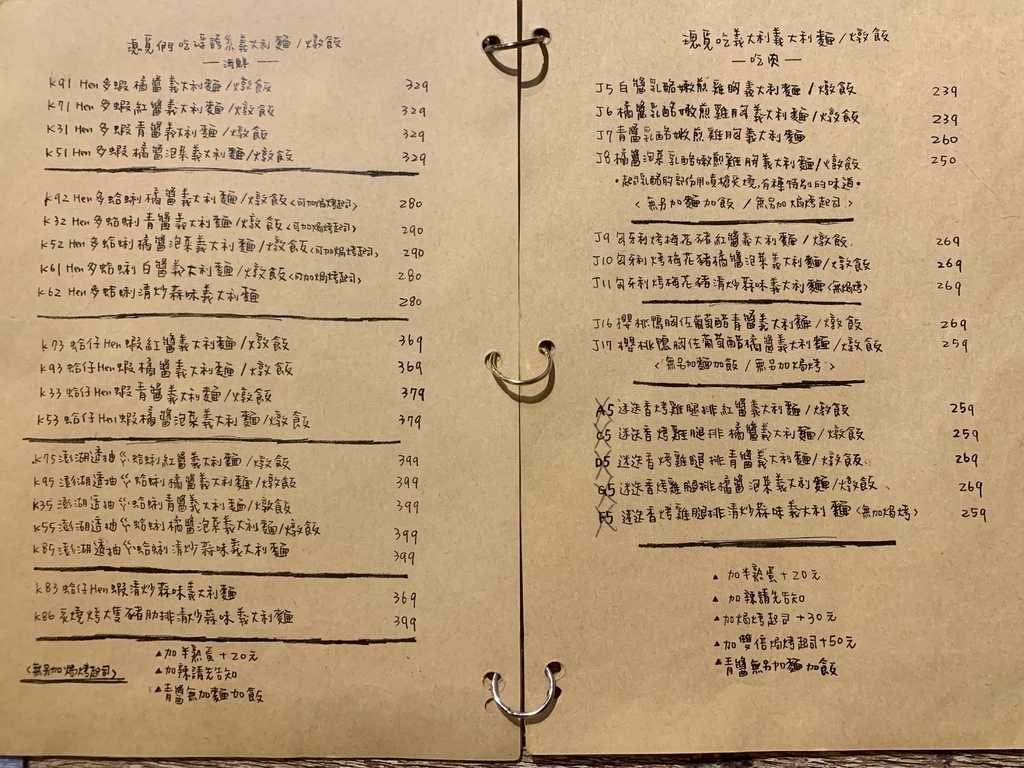 吃浮誇系義大利麵/燉飯
—海鮮—
K91 Hen多蝦橘醬義大利麵/燉飯 329
K71 Hen多蝦紅醬義大利麵/燉飯 329
K31 Hen多蝦青醬義大利麵/燉飯 329
K51 Hen多蝦橘醬泡菜義大利麵/燉飯 329
K92 Hen多蛤蜊橘醬義大利麵/燉飯<可加焗烤起司> 280
K32 Hen多蛤蜊青醬義大利麵/燉飯<可加焗烤起司> 290
K52 Hen多蛤蜊橘醬泡菜義大利麵/燉飯<可加焗烤起司> 290
K61 Hen多蛤蜊白醬義大利麵/燉飯<可加焗烤起司> 280
K62 Hen多蛤蜊清炒蒜味義大利麵 280
K73 蛤仔Hen蝦紅醬義大利麵/燉飯 369
K93 蛤仔Hen蝦橘醬義大利麵/燉飯 369
K33 蛤仔Hen蝦青醬義大利麵/燉飯 379
K53 蛤仔Hen蝦橘醬泡菜義大利麵/燉飯 379
K75 澎湖透抽佐蛤蜊紅醬義大利麵/燉飯 399
K95 澎湖透抽佐蛤蜊橘醬義大利麵/燉飯 399
K35 澎湖透抽佐蛤蜊青醬義大利麵/燉飯 399
K55 澎湖透抽佐蛤蜊橘醬泡菜義大利麵/燉飯 399
K85 澎湖透抽佐蛤蜊清炒蒜味義大利麵 399
K83 蛤仔Hen蝦清炒蒜味義大利麵 369
K86 炙燒烤大隻豬肋排清炒蒜味義大利麵 399
<無另加焗烤起司>
▲加半熟蛋+20元
▲加辣請先告知
▲青醬無加麵加飯
吃義大利義大利麵/燉飯
—吃肉—
J5 白醬乳酪嫩煎雞胸義大利麵/燉飯 239
J6 橘醬乳酪嫩煎雞胸義大利麵/燉飯 239
J7 青醬乳酪嫩煎雞胸義大利麵 260
J8 橘醬泡菜乳酪嫩煎雞胸義大利麵/燉飯 250
•起司乳酪的部份用噴槍炙燒,有種特別的味道•
<無另加麵加飯/無另加焗烤起司>
J9 匈牙利烤梅花豬紅醬義大利麵/燉飯 269
J10 匈牙利烤梅花豬橘醬泡菜義大利麵/燉飯 269
J11 匈牙利烤梅花豬清炒蒜味義大利麵<無焗烤> 269
J16 櫻桃鴨胸佐葡萄醋青醬義大利麵/燉飯 269
J17 櫻桃鴨胸佐葡萄醋橘醬義大利麵/燉飯 259
<無另加麵加飯/無另加焗烤>
A5 迷迭香烤雞腿排紅醬義大利麵/燉飯 259
C5 迷迭香烤雞腿排橘醬義大利麵/燉飯 259
D5 迷迭香烤雞腿排青醬義大利麵/燉飯 269
G5 迷迭香烤雞腿排橘醬泡菜義大利麵/燉飯 269
F5 迷迭香烤雞腿排清炒蒜味義大利麵<無加焗烤> 259
▲加半熟蛋+20元
▲加辣請先告知
▲加焗烤起司+30元
▲加雙倍焗烤起司+50元
▲青醬無另加麵加飯